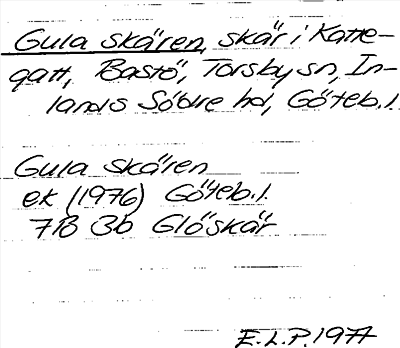 Gula skären, skär i Katte-
gatt, Bastö, Torsby sn, In-
lands Södre hd, Göteb.l.
Gula skären
ek (1976) Göteb.l.
7B 3b Glöskär
E.L.P. 1977